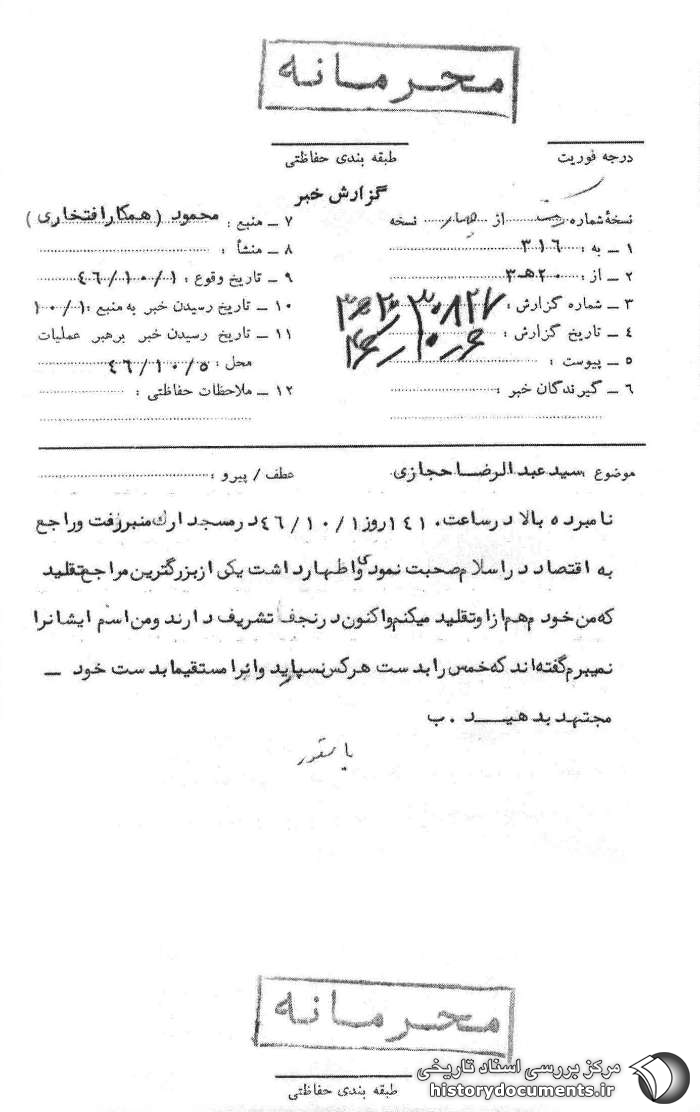 محرمانه
درجه فوریت
طبقه بندی حفاظتی
گزارش خبر
نسخهٔ شماره از چهار نسخه
۱ ـ به : ۳۱۶
۲ ـ از : ۲۰ ه‍ ۳
۳ ـ شماره گزارش :
۴ ـ تاریخ گزارش :
۵ ـ پیوست :
۶ ـ گیرندگان خبر :
۷ ـ منبع : محمود (همکار افتخاری)
۸ ـ منشأ :
۹ ـ تاریخ وقوع : ۴۶/۱۰/۱
۱۰ ـ تاریخ رسیدن خبر به منبع : ۱۰/۱
۱۱ ـ تاریخ رسیدن خبر برهبر عملیات
محل : ۴۶/۱۰/۵
۱۲ ـ ملاحظات حفاظتی :
موضوع : سید عبدالرضا حجازی
عطف / پیرو :
نامبرده بالا در ساعت ۱۴۱۰ روز ۴۶/۱۰/۱ در مسجد ارك منبر رفت وراجع
به اقتصاد در اسلام صحبت نمود واظهار داشت یکی از بزرگترین مراجع تقلید
که من خود م هم از او تقلید میکنم واکنون در نجف تشریف دارند ومن اسم ایشانرا
نمیبرم گفته اند که خمس را بدست هر کس نسپارید وانرا مستقیما بدست خود ـ
مجتهد بدهیــد . ب
محرمانه
طبقه بندی حفاظتی
مرکز بررسی اسناد تاریخی
historydocuments.ir